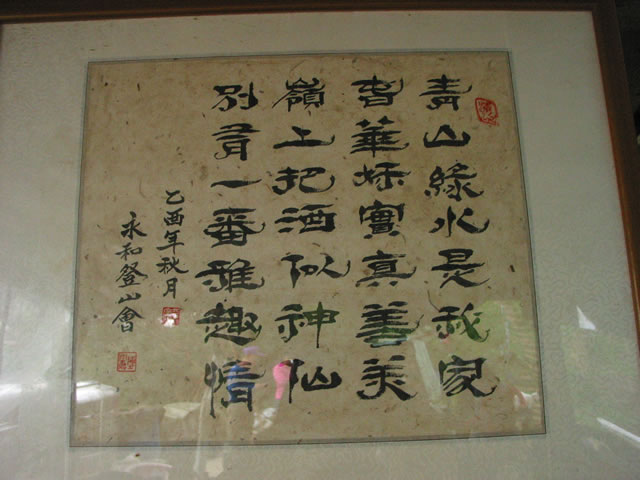 青山綠水是我家
春華秋實真善美
嶺上把酒似神仙
別有一番雅趣情
乙酉年秋月
永和登山會